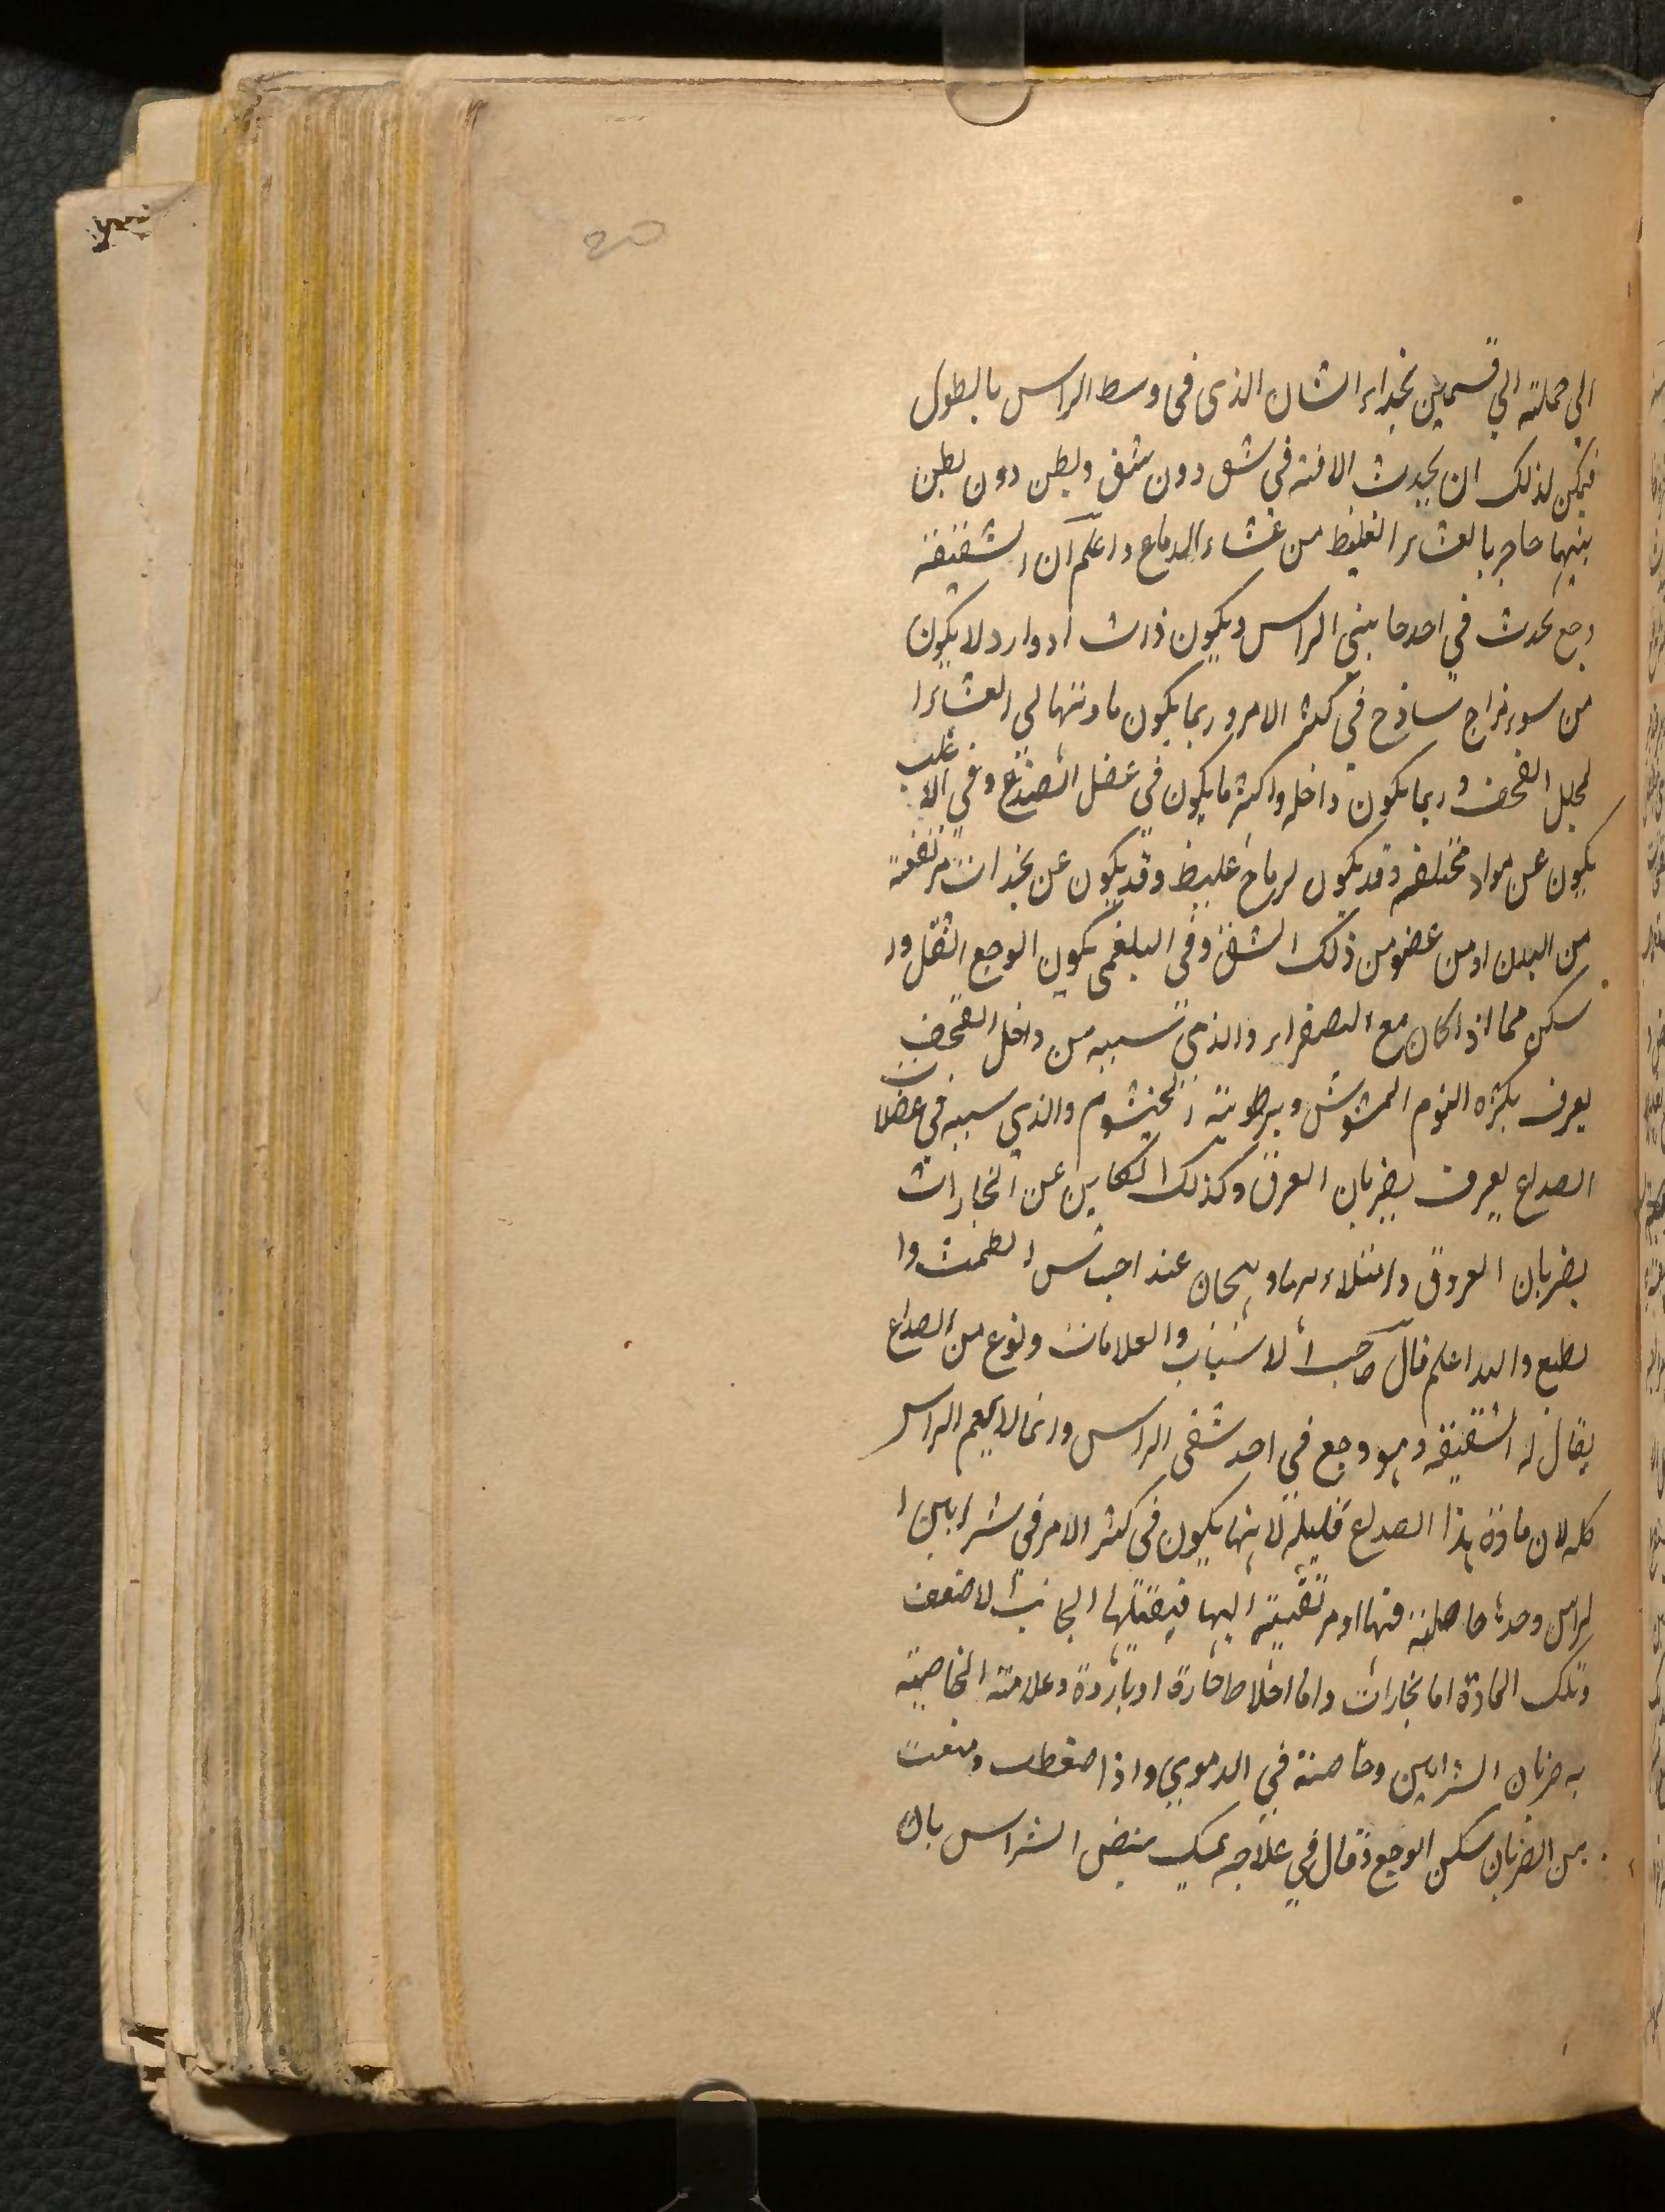 الي جملته الي قسمين بخداء الشان الذى فى وسط الراس بالطول
فيمكن لذلك ان يحدث الافته في شق دون شق وبطن دون بطن
بينهما حاجز بالغشاء الغليظ من غشاء الدماغ واعلم ان الشقيقه
وجع يحدث في احد جانبى الراس ويكون ذات ادوار ولا يكون
من سوء مزاج ساذج في كثر الامر وربما يكون مادتها الى الغشاء ا
لمجلل القحف وربما يكون داخله واكثر ما يكون فى عضل الصدغ وفي الاغلب
يكون عن مواد مختلفه وقد يكون لرياح غليظ وقد يكون عن بخدات مرتفعة
من البدن او من عضو من ذلك الشق وفى البلغمى يكون الوجع اثقل وا
سكن مما اذا كان مع الصفراء والذى سببه من داخل القحف
يعرف بكثره النوم المشوش وبرطوبته الخيشوم والذي سببه في عضلات
الصداع يعرف بضربان العرق وكذلك الكاين عن البخارات
بضربان العروق وامتلاء ها وهيجان عند احتباس الطمث وا
لطبع والله اعلم قال صاحب الاسباب والعلامات ونوع من الصداع
يقال له الشقيقه وهو وجع في احد شقى الراس وانما لا يعم الراس
كله لان مادة هذا الصداع قليلة لانها يكون فى كثر الامر في شرايين ا
لراس وحدها حاصلة فيها او مرتقية اليها فيقبلها الجانب الاضعف
وتلك المادة اما بخارات واما اخلاط حارة او باردة وعلامته الخاصية
به ضربان الشرايين وخاصة في الدموي واذا ضغطت ومنعت
من الضربان سكن الوجع وقال في علاجه يمسك بنبض الشراس بان